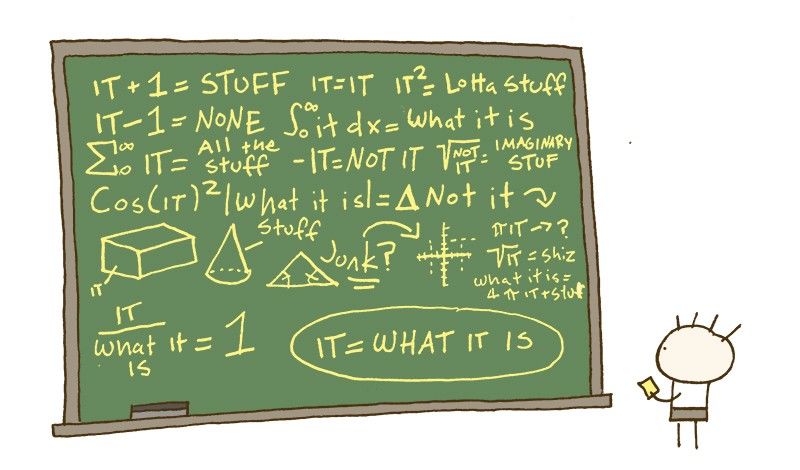 IT + 1 = STUFF IT=IT IT²= Lotta Stuff
IT-1 = NONE ∫₀^∞ it dx = What it is
∑₀^∞ IT = All the Stuff -IT=NOT IT √NOT IT = IMAGINARY STUF
Cos(IT)²|What it is|=Δ Not it
Stuff
IT
Junk?
πIT→?
√IT = Shiz
what it is=
4πIT+Stuf
IT
What it is = 1
IT= WHAT IT IS